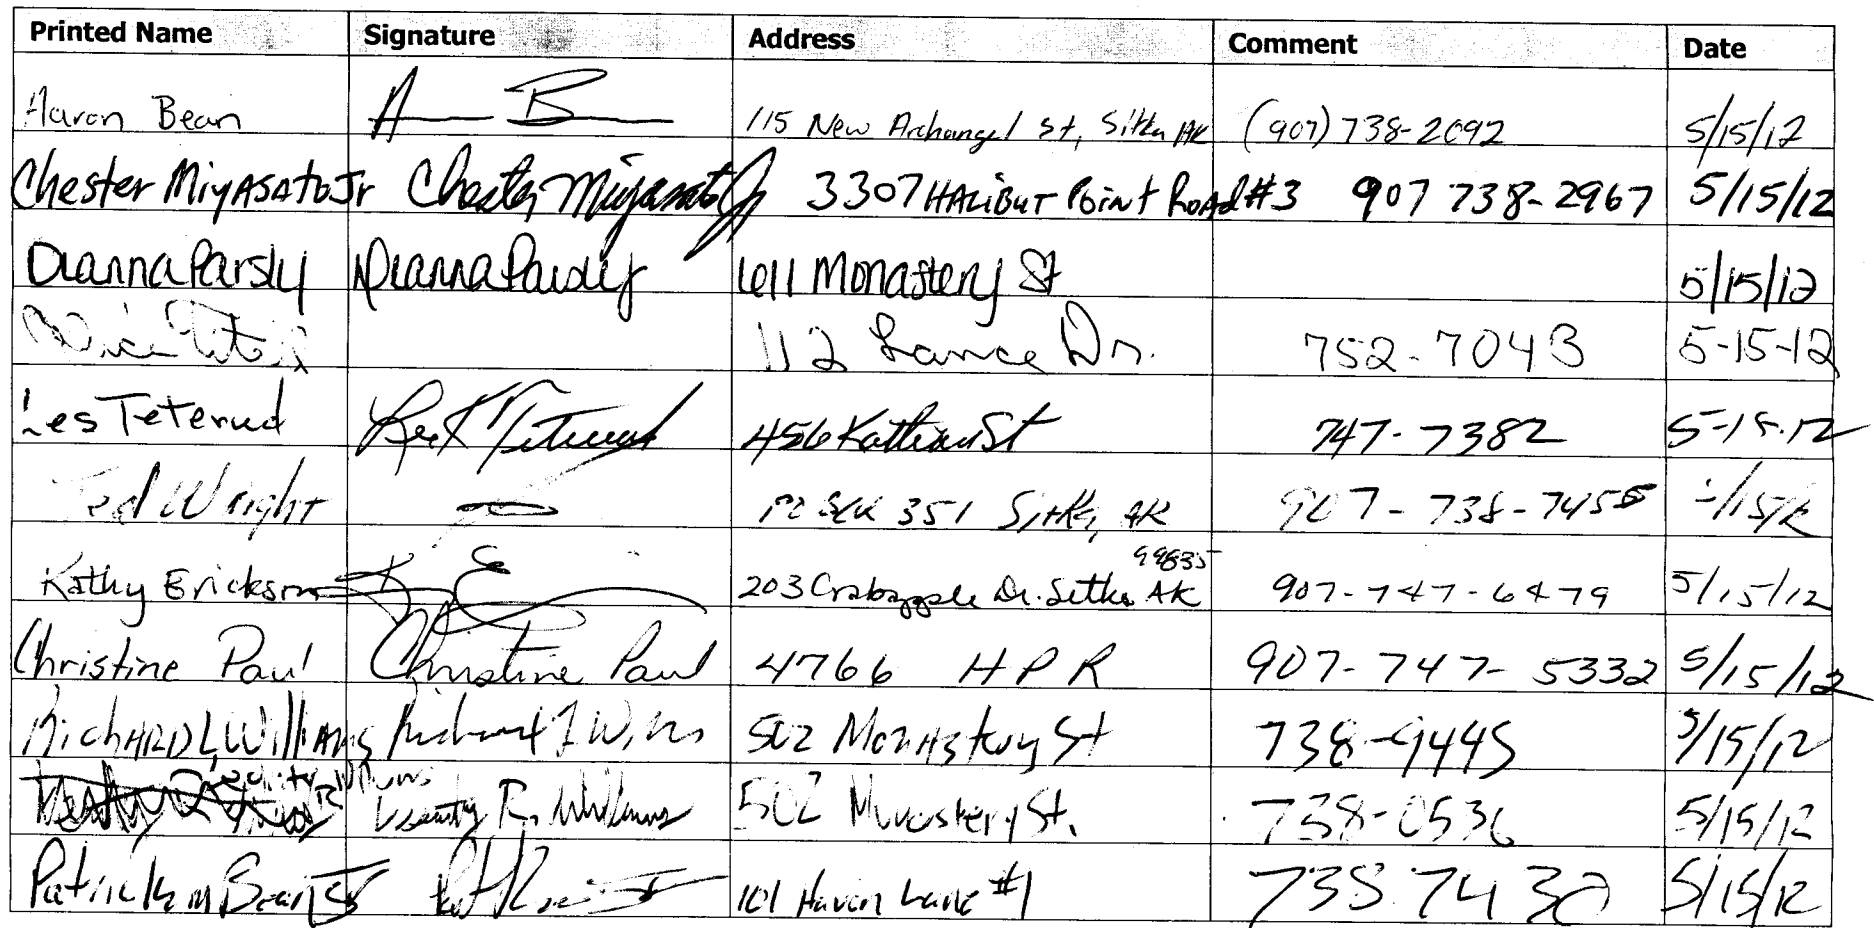 Printed Name Signature Address Comment Date
Aaron Bean A B 115 New Archangel St, Sitka AK (907) 738-2092 5/15/12
Chester MiyASAto Jr Chester Miyasato Jr 3307 HALiBUT Point Road #3 907 738-2967 5/15/12
Dianna Parsly Dianna Parsley 611 Monastery St 5/15/12
112 Lance Dr. 752-7043 5-15-12
Les Teterud 456 Katlian St 747-7382 5-15-12
Ted Wright PO Box 351 Sitka, AK 907-738-7455 /15/12
99835
Kathy Erickson K E 203 Crabapple Dr. Sitka AK 907-747-6479 5/15/12
Christine Paul Christine Paul 4766 HPR 907-747-5332 5/15/12
RichARD L Williams Richard L W 502 Monastery St 738-9445 5/15/12
Williams R. Williams 502 Monastery St. 738-0536 5/15/12
Patrick M Bean Jr 101 Haven Lane #1 738 7430 5/15/12